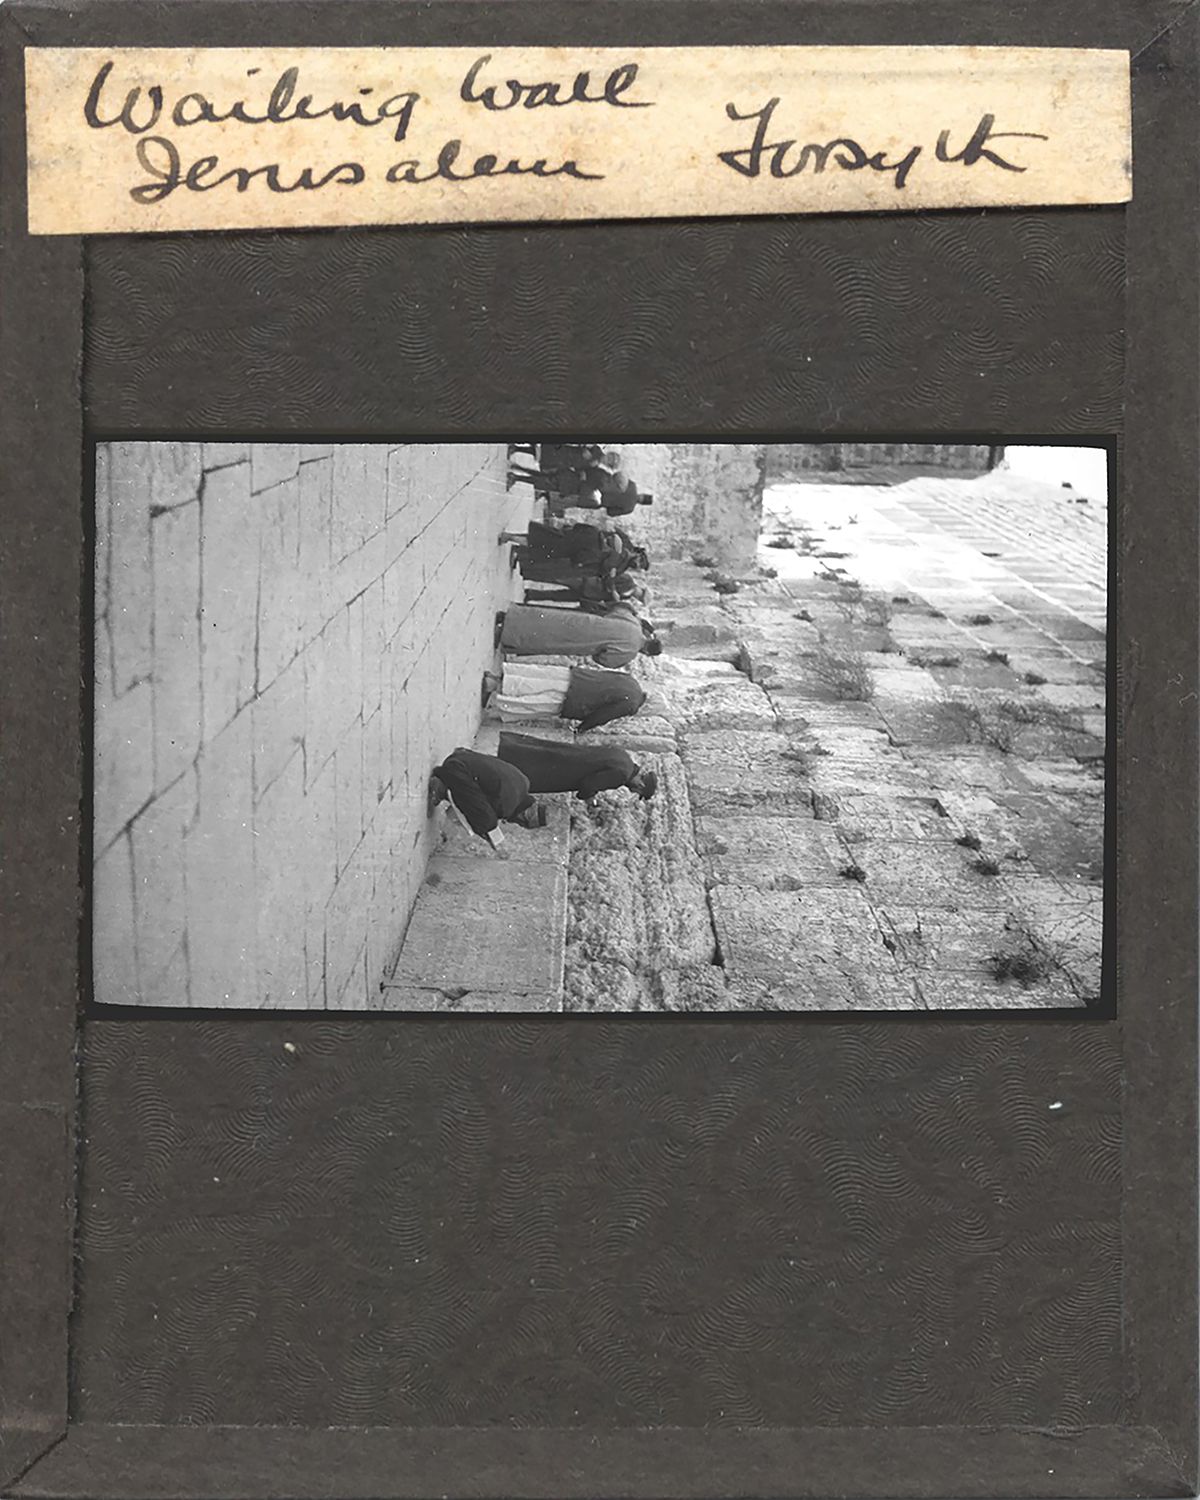 Wailing Wall
Jerusalem Forsyth